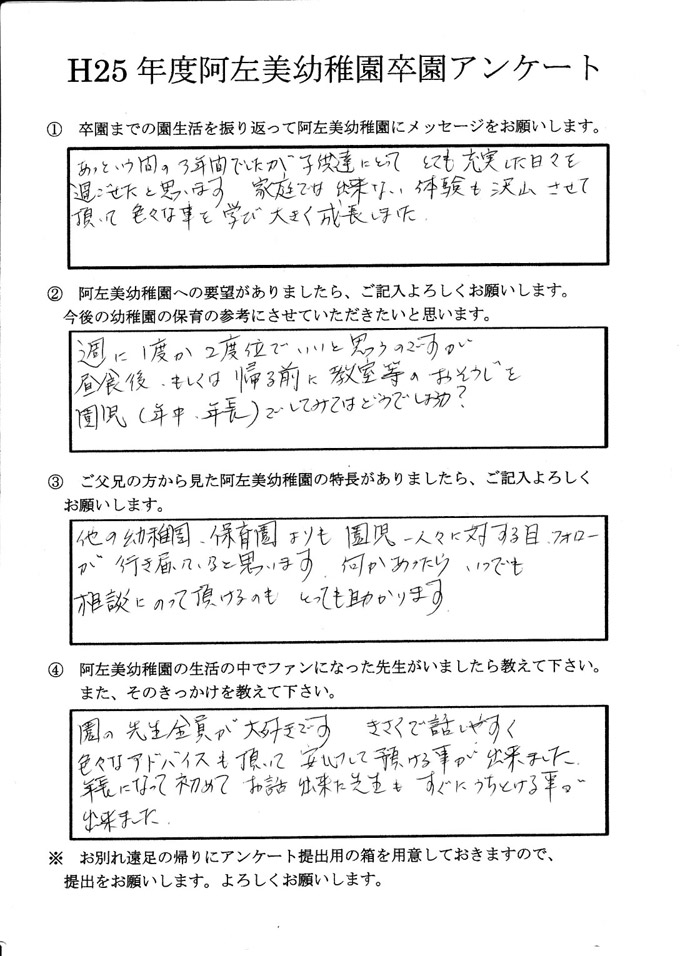 H25年度阿左美幼稚園卒園アンケート
① 卒園までの園生活を振り返って阿左美幼稚園にメッセージをお願いします。
あっという間の3年間でしたが子供達にとって とても充実した日々を
過ごせたと思います 家庭では出来ない体験も沢山させて
頂いて色々な事を学び大きく成長しました.
② 阿左美幼稚園への要望がありましたら、ご記入よろしくお願いします。
今後の幼稚園の保育の参考にさせていただきたいと思います。
週に1度か2度位でいいと思うのですが
昼食後、もしくは帰る前に教室等のおそうじを
園児(年中、年長)でしてみてはどうでしょうか?
③ ご父兄の方から見た阿左美幼稚園の特長がありましたら、ご記入よろしく
お願いします。
他の幼稚園、保育園よりも園児一人々に対する目、フォロー
が行き届いていると思います 何かあったら いつでも
相談にのって頂けるのも とっても助かります
④ 阿左美幼稚園の生活の中でファンになった先生がいましたら教えて下さい。
また、そのきっかけを教えて下さい。
園の先生全員が大好きです きさくで話しやすく
色々なアドバイスも頂いて安心して預ける事が出来ました.
年長になって初めてお話出来た先生もすぐにうちとける事が
出来ました.
※ お別れ遠足の帰りにアンケート提出用の箱を用意しておきますので、
提出をお願いします。よろしくお願いします。